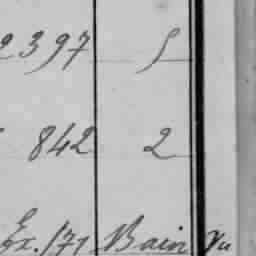 2397 5
842 2
Ex. 171 Bain